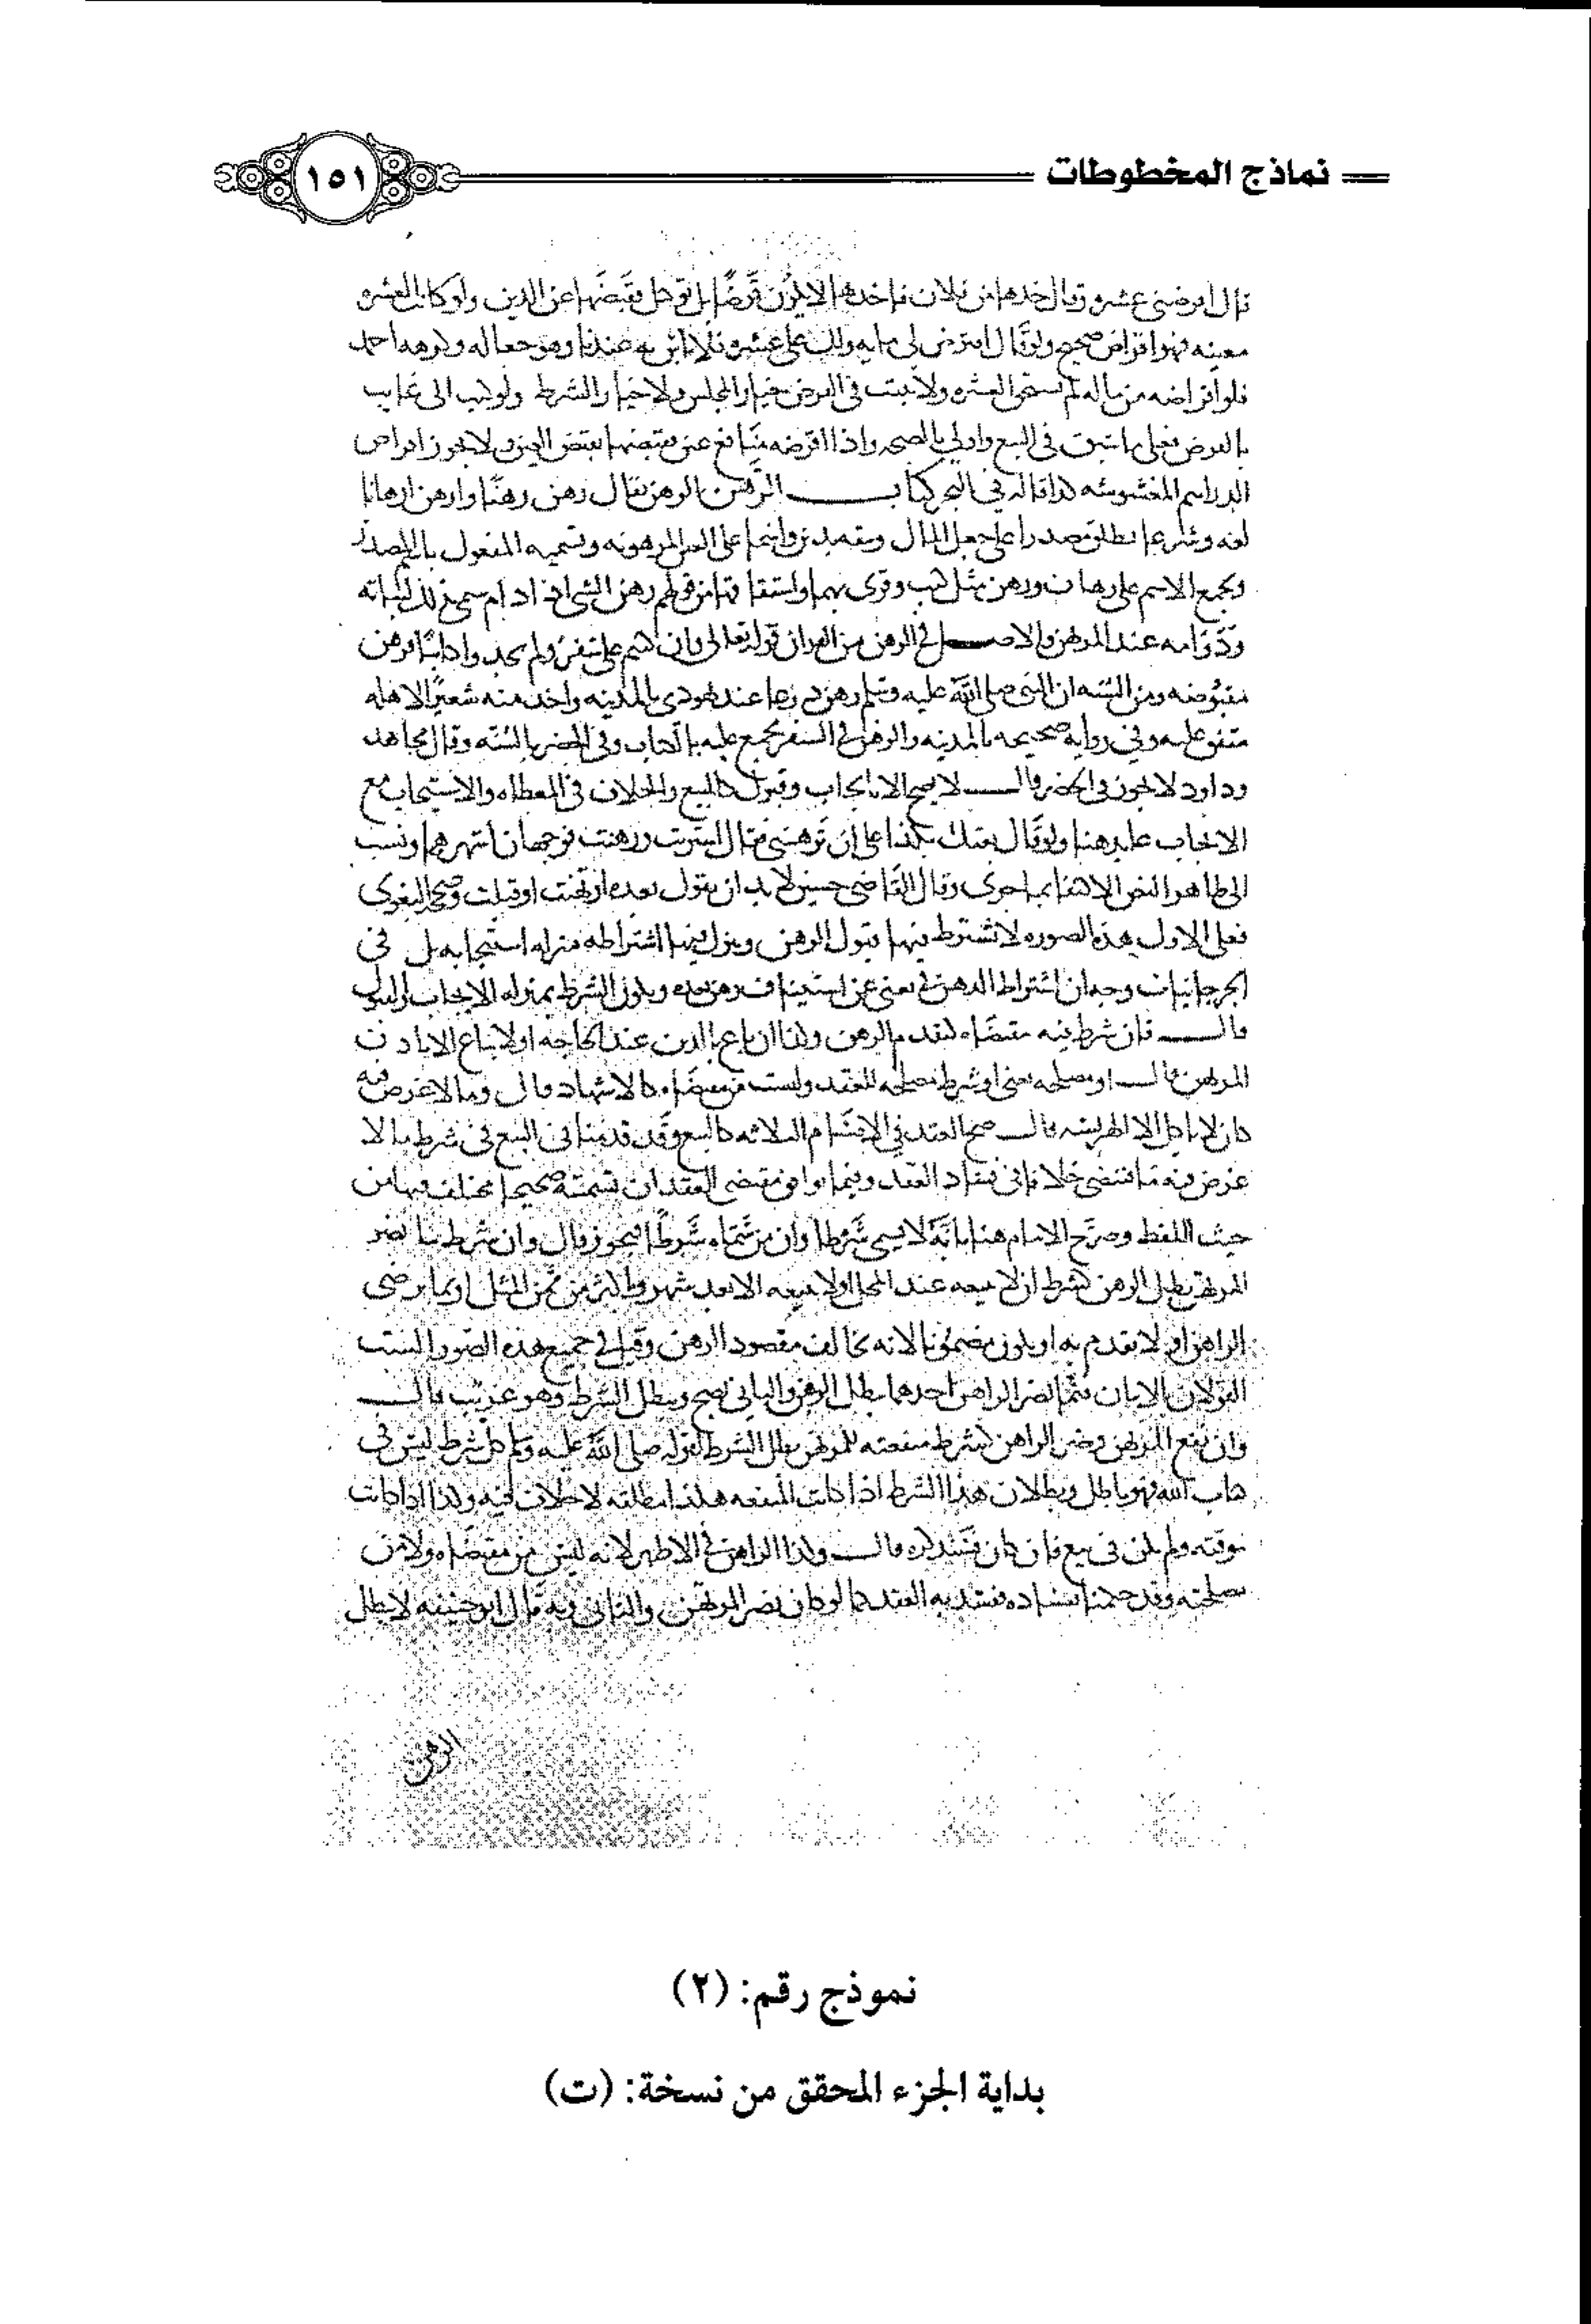 نماذج المخطوطات
١٥١
قال اقرضني عشره وقال خدها من فلان فاخدها لا يكون قرضًا بل توكيل بقبضها عن الدين ولو كانت العشره
معينه فهو اقراض صحيح ولو قال اقترض لي مايه ولك علي عشره فلا باس به عندنا وهو جعاله وكرهه احمد
فلو اقراضه من ماله لم يستحق العشره ولا يثبت في القرض خيار المجلس ولا خيار الشرط ولو كتب الى غايب
بالقرض فعلى ما سبق في البيع واولى بالصحه واذا اقرضه منافع عين يقبضها بقبض العين ولا يجوز اقراض
الدراهم المغشوشه كذا قاله في البحر كتاب الرَّهن الرهن يقال رهن رهنًا وارهن ارهانا
لغه وشرعا يطلق مصدرا على جعل المال وثيقه بدين واسما على العين المرهونه وتسميه المفعول بالمصدر
ويجمع الاسم على رهان ورهن مثل كتب وقرى بهما واشتقاقها من قولهم رهن الشي اذا دام سمي بذلك لثباته
ودوامه عند المرتهن والاصل في الرهن من القران قوله تعالى وان كنتم على سفر ولم تجدوا كاتبًا فرهن
مقبوضه ومن السنه ان النبي صلى الله عليه وسلم رهن درعا عند يهودي بالمدينه واخذ منه شعيرًا لاهله
متفق عليه وفي روايه صحيحه بالمدينه والرهن في السفر مجمع عليه بالكتاب وفي الحضر بالسنه وقال مجاهد
وداود لا يجوز في الحضر قال لا يصح الا بايجاب وقبول كالبيع والخلاف في المعطاه والاستيجاب مع
الايجاب عايد هنا ولو قال بعتك بكذا على ان ترهنني فقال اشتريت ورهنت فوجهان اشهرهما ونسب
الى ظاهر النص الاكتفا بما جرى وقال القاضي حسين لا بد ان يقول بعده ارتهنت او قبلت وصححه البغوي
فعلى الاول هذه الصوره لا تشترط فيها قبول الرهن وينزل فيها اشتراطه منزله استيجابه بل في
الجرجانيات وجه ان اشتراط الرهن يغني عن استيناف رهن بعده ويكون الشرط بمنزله الايجاب والقبول
قال فان شرط فيه مقتضاه كتقدم المرتهن وكذا ان يباع في الدين عند الحاجه او لا يباع الا باذن
المرتهن قال او مصلحه يعني او شرط مصلحه للعقد وليست من مقتضاه كالاشهاد قال وما لا غرض فيه
كان لا ياكل الا الهريسه قال صح العقد في الاقسام الثلاثه كالبيع وقد قدمنا في البيع في شرط ما لا
غرض فيه ما يقتضي خلافا في فساد العقد وفيما يوافق مقتضى العقد ان تسميته صحيحا مختلف فيها من
حيث اللفظ وصرح الامام هنا بانه لا يسمى شرطا وان من سماه شرطًا تجوز قال وان شرط ما يضر
المرتهن بطل الرهن كشرط ان لا يبيعه عند المحل او لا يبيعه الا بعد شهر وباكثر من ثمن المثل او بما يرضى
الراهن او لا يقدم به او يكون مضمونا لانه يخالف مقصود الرهن وقيل في جميع هذه الصور الست
القولان الاتيان فيما يضر الراهن احدهما يبطل الرهن والثاني يصح ويبطل الشرط وهو غريب قال
وان نفع المرتهن وضر الراهن كشرط منفعته للمرتهن بطل الشرط لقوله صلى الله عليه وسلم كل شرط ليس في
كتاب الله فهو باطل وبطلان هذا الشرط اذا كانت المنفعه هكذا مطلقه لا خلاف فيه وكذا اذا كانت
موقته ولم يكن في بيع فان كان فسنذكره قال وكذا الرهن في الاظهر لانه ليس من مقتضاه ولا من
مصلحته وقد حكمنا بفساده فيفسد به العقد كما لو كان يضر المرتهن والثاني وبه قال ابو حنيفه لا يبطل
الرهن
نموذج رقم: (٢)
بداية الجزء المحقق من نسخة: (ت)